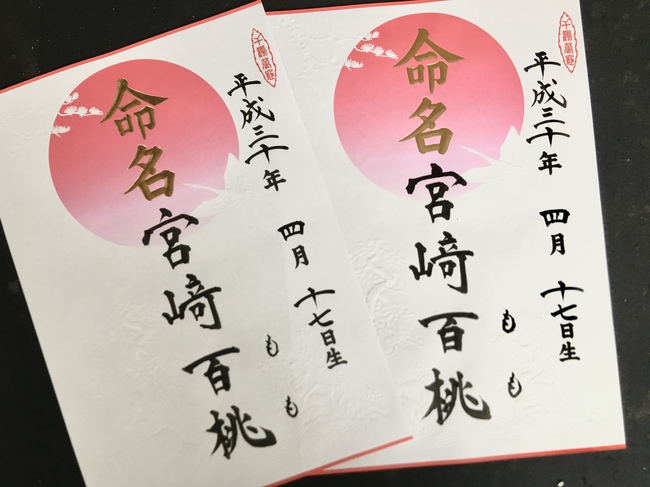 平成三十年 四月 十七日生
命名 宮﨑百桃
もも
平成三十年 四月 十七日生
命名 宮﨑百桃
もも